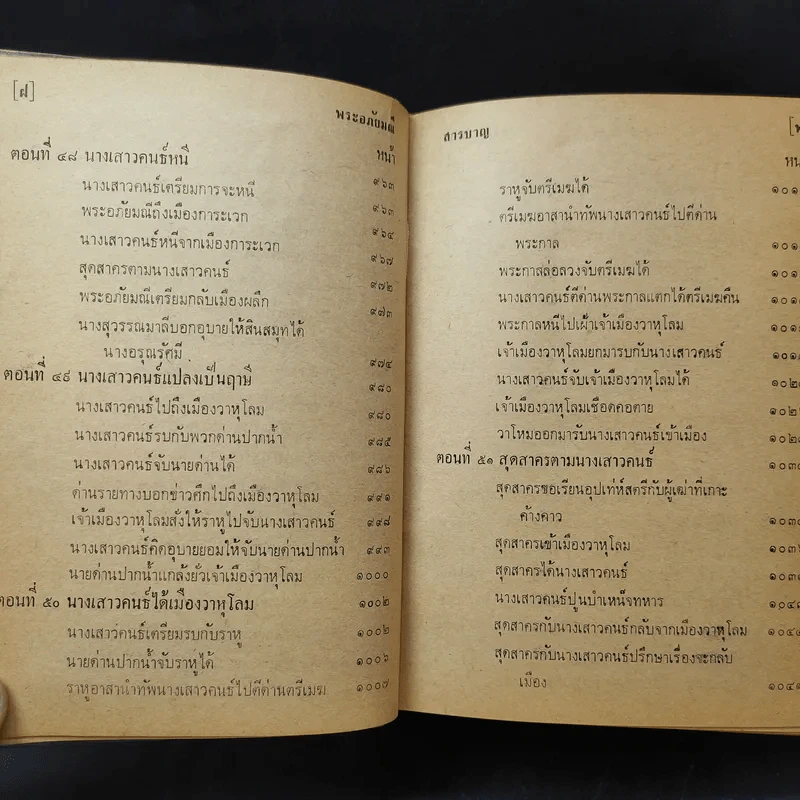 [ฝ]
พระอภัยมณี
หน้า
ตอนที่ ๔๘ นางเสาวคนธ์หนี ๙๖๓
นางเสาวคนธ์เตรียมการจะหนี ๙๖๓
พระอภัยมณีถึงเมืองการะเวก ๙๖๔
นางเสาวคนธ์หนีจากเมืองการะเวก ๙๖๗
สุดสาครตามนางเสาวคนธ์ ๙๗๒
พระอภัยมณีเตรียมกลับเมืองผลึก ๙๗๓
นางสุวรรณมาลีบอกอุบายให้สินสมุทได้
นางอรุณรัศมี ๙๗๔
ตอนที่ ๔๙ นางเสาวคนธ์แปลงเป็นฤาษี ๙๘๐
นางเสาวคนธ์ไปถึงเมืองวาหุโลม ๙๘๐
นางเสาวคนธ์รบกับพวกด่านปากน้ำ ๙๘๕
นางเสาวคนธ์จับนายด่านได้ ๙๘๖
ด่านรายทางบอกข่าวศึกไปถึงเมืองวาหุโลม ๙๙๑
เจ้าเมืองวาหุโลมสั่งให้ราหูไปจับนางเสาวคนธ์ ๙๙๘
นางเสาวคนธ์คิดอุบายยอมให้จับนายด่านปากน้ำ ๙๙๓
นายด่านปากน้ำแกล้งยั่วเจ้าเมืองวาหุโลม ๑๐๐๐
ตอนที่ ๕๐ นางเสาวคนธ์ได้เมืองวาหุโลม ๑๐๐๒
นางเสาวคนธ์เตรียมรบกับราหู ๑๐๐๒
นายด่านปากน้ำจับราหูได้ ๑๐๐๖
ราหูอาสานำทัพนางเสาวคนธ์ไปตีด่านตรีเมฆ ๑๐๐๗
สารบาญ
ราหูจับตรีเมฆได้ ๑๐๑
ตรีเมฆอาสานำทัพนางเสาวคนธ์ไปตีด่าน
พระกาล ๑๐๑
พระกาลล่อลวงจับตรีเมฆได้ ๑๐๑
นางเสาวคนธ์ตีด่านพระกาลแตกได้ตรีเมฆคืน ๑๐๑
พระกาลหนีไปเฝ้าเจ้าเมืองวาหุโลม ๑๐๑
เจ้าเมืองวาหุโลมยกมารบกับนางเสาวคนธ์ ๑๐๑
นางเสาวคนธ์จับเจ้าเมืองวาหุโลมได้ ๑๐๒
เจ้าเมืองวาหุโลมเชือดคอตาย ๑๐๒
วาโหมออกมารับนางเสาวคนธ์เข้าเมือง ๑๐๒
ตอนที่ ๕๑ สุดสาครตามนางเสาวคนธ์ ๑๐๓
สุดสาครขอเรียนอุปเท่ห์สตรีกับผู้เฒ่าที่เกาะ
ค้างคาว ๑๐๓
สุดสาครเข้าเมืองวาหุโลม ๑๐๓
สุดสาครได้นางเสาวคนธ์ ๑๐๓
นางเสาวคนธ์ปูนบำเหน็จทหาร ๑๐๔
สุดสาครกับนางเสาวคนธ์กลับจากเมืองวาหุโลม ๑๐๔
สุดสาครกับนางเสาวคนธ์ปรึกษาเรื่องจะกลับ
เมือง ๑๐๔